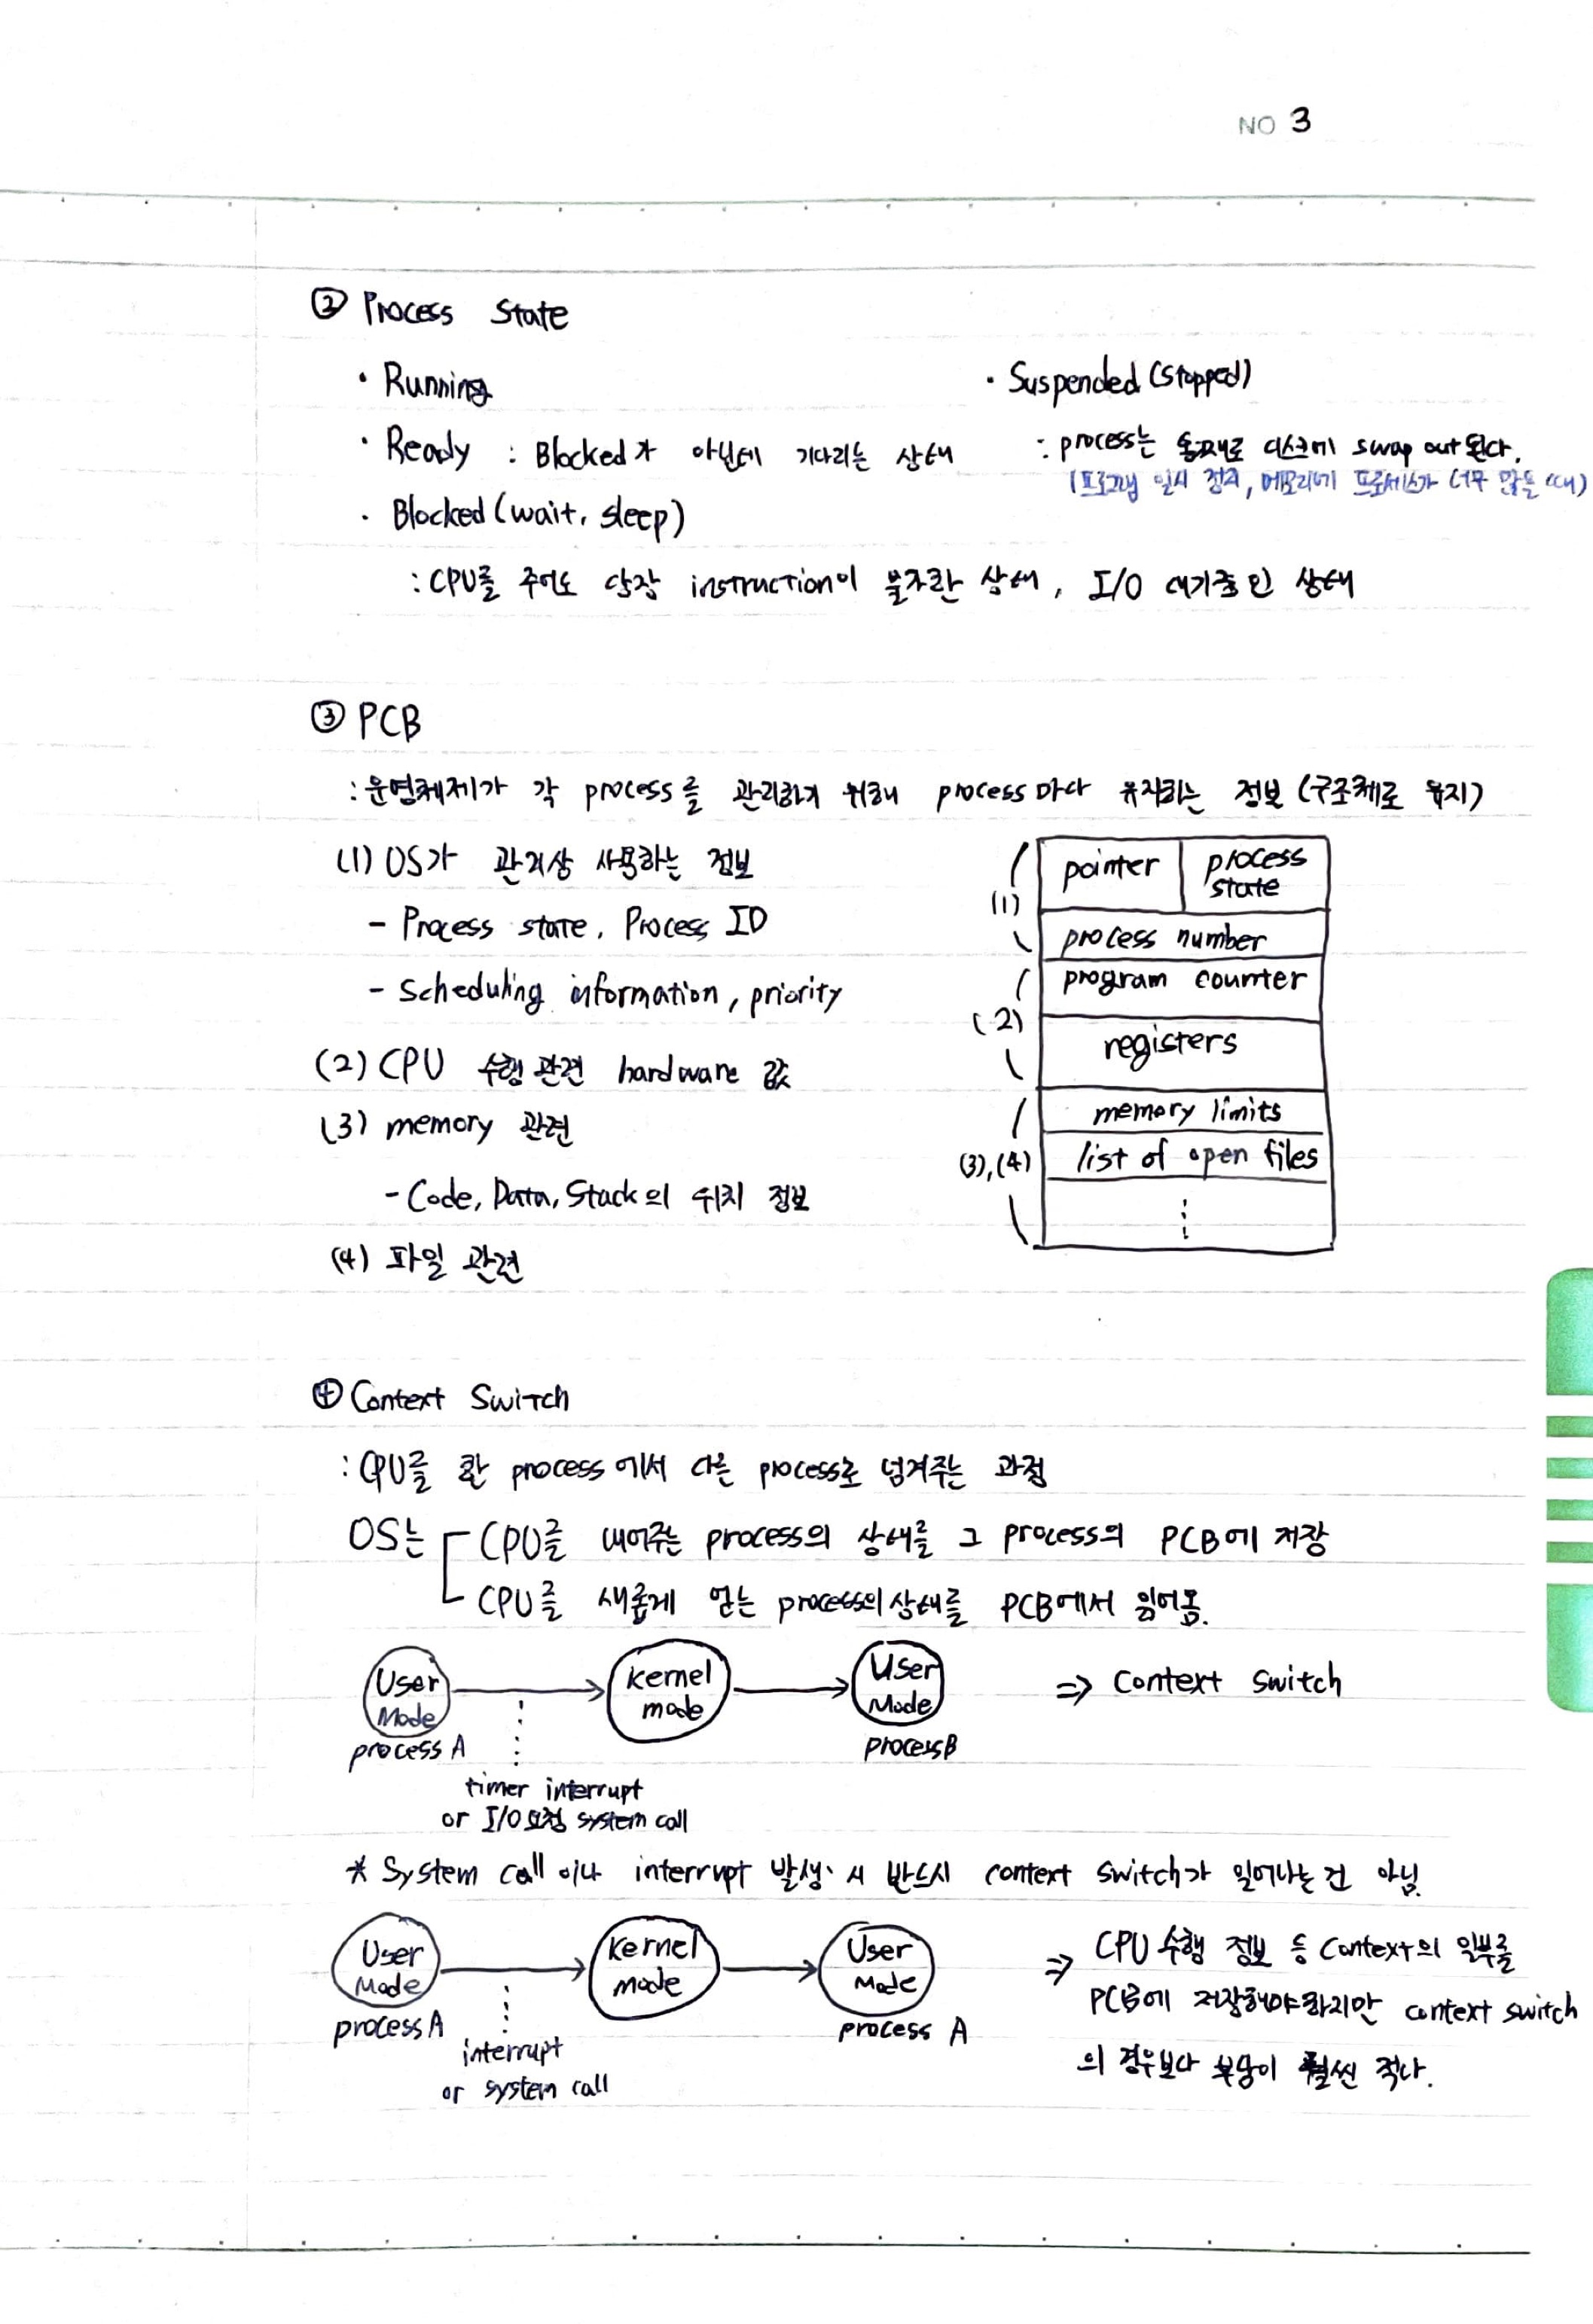 NO 3
② Process State
• Running
• Ready : Blocked가 아닌데 기다리는 상태
• Blocked (wait, sleep)
: CPU를 주어도 당장 instruction이 불가한 상태, I/O 대기중인 상태
• Suspended (stopped)
: process는 통째로 디스크에 swap out 된다.
(프로그램 일시 정지, 메모리에 프로세스가 너무 많을 때)
③ PCB
: 운영체제가 각 process를 관리하기 위해 process마다 유지하는 정보 (구조체로 유지)
(1) OS가 관리상 사용하는 정보
- Process state, Process ID
- scheduling information, priority
(2) CPU 수행 관련 hardware 값
(3) memory 관련
- Code, Data, Stack의 위치 정보
(4) 파일 관련
(1)
pointer
process
state
process number
(2)
program counter
registers
(3),(4)
memory limits
list of open files
④ Context Switch
: CPU를 한 process에서 다른 process로 넘겨주는 과정
OS는 CPU를 내어주는 process의 상태를 그 process의 PCB에 저장
CPU를 새롭게 얻는 process의 상태를 PCB에서 읽어옴.
User
Mode
process A
kernel
mode
User
Mode
process B
⇒ Context switch
timer interrupt
or I/O 요청 system call
* System call 이나 interrupt 발생 시 반드시 context switch가 일어나는 건 아님.
User
Mode
process A
Kernel
mode
User
Mode
process A
interrupt
or system call
⇒ CPU 수행 정보 등 context의 일부를
PCB에 저장해야 하지만 context switch
의 경우보다 부담이 훨씬 적다.